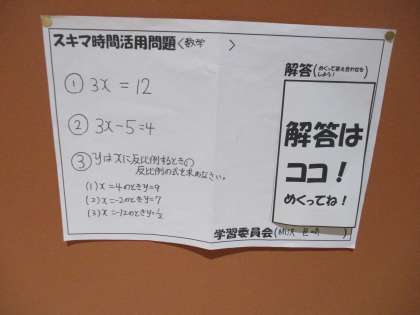 スキマ時間活用問題〈数学　　〉
① 3x = 12
② 3x-5=4
③ yはxに反比例するときの
反比例の式を求めなさい。
(1) x=4のときy=9
(2) x=-2のときy=7
(3) x=-12のときy=1/2
解答(めくって答え合わせをしよう！)
解答は
ココ！
めくってね！
学習委員会(